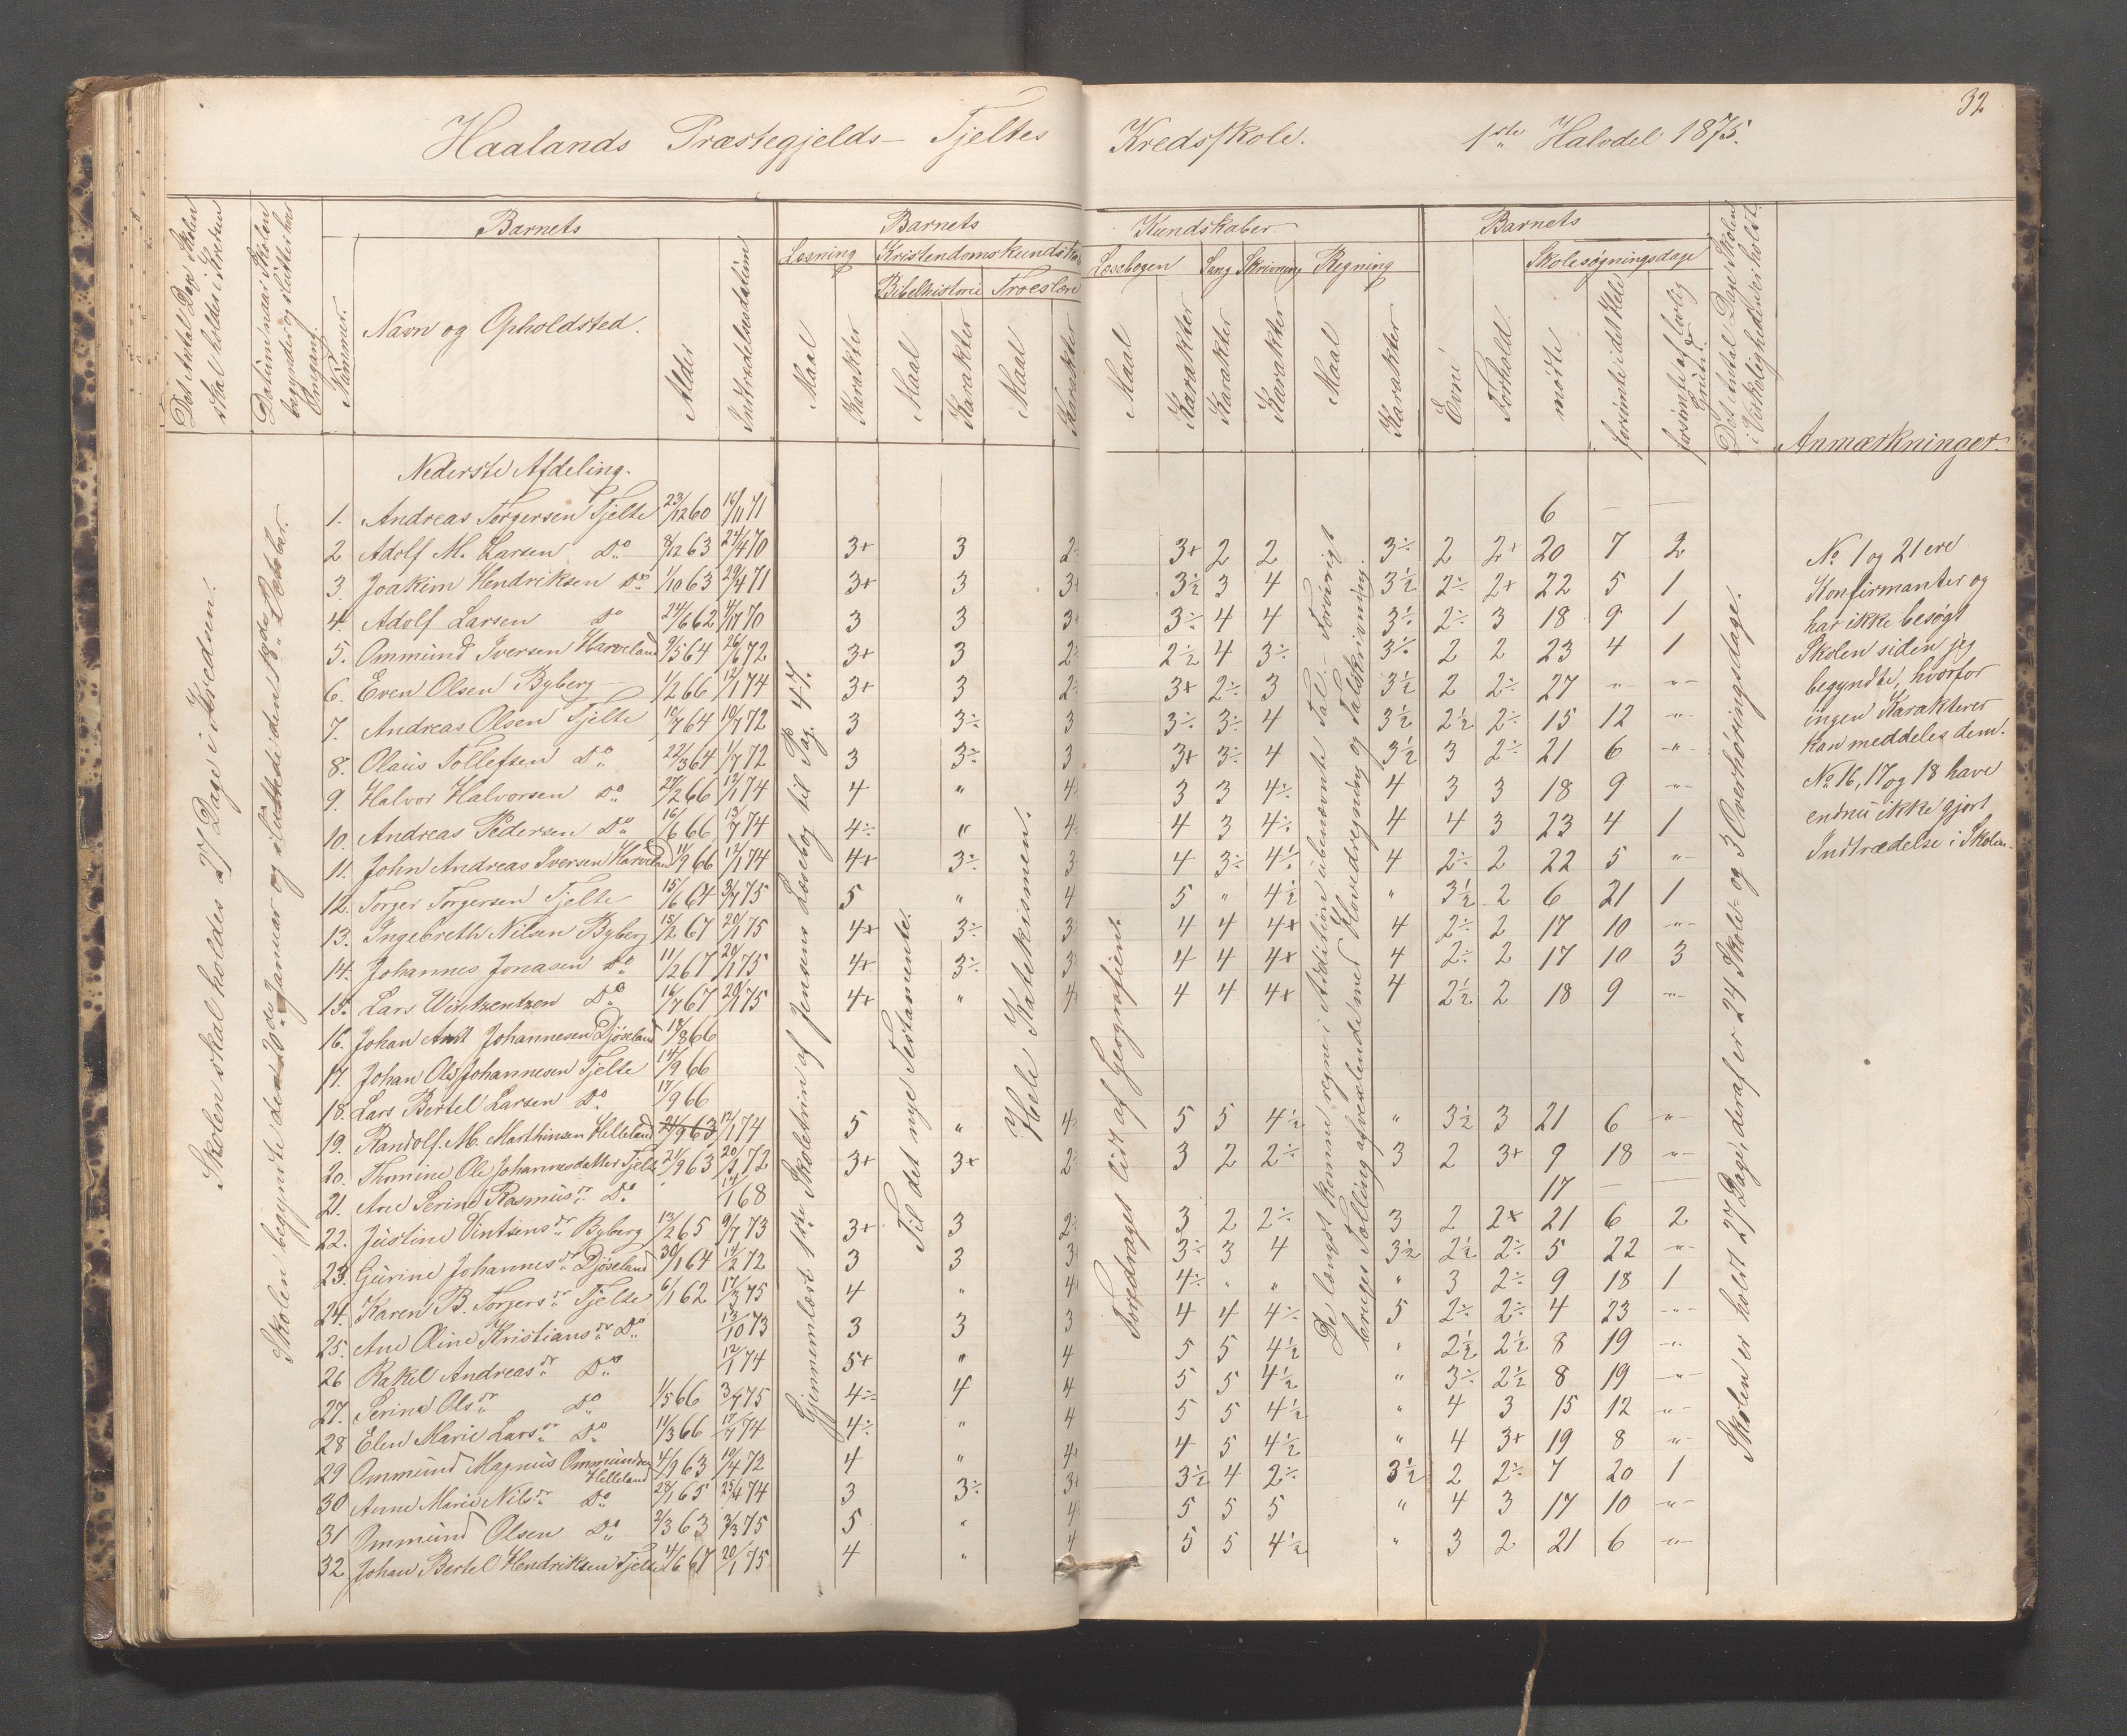 32
Haalands Præstegjelds- Tjeltes Kredsskole. 1ste Halvdel 1875.
Det Antal Dage Skolen skal holdes i Kredsen
Datum naar Skolen begynder og slutter hver Omgang.
Nummer.
Barnets
Navn og Opholdsted.
Alder
Indtrædelsesdatum
Barnets Kundskaber.
Læsning
Maal
Karakter
Kristendomskundskab
Bibelhistorie
Maal
Karakter
Troeslære
Maal
Karakter
Læsebogen
Maal
Karakter
Sang
Karakter
Skrivning
Karakter
Regning
Maal
Karakter
Barnets
Evne
Forhold.
Skolesøgningsdage
mødte
forsømte i det Hele
forsømte af lovlig Grund.
Det Antal Dage Skolen i Virkeligheden er holdt.
Anmærkninger.
Skolen skal holdes 27 Dage i Kredsen.
Skolen begyndte den 20de Januar og sluttede den 18de October.
Gjennemlæst 1ste Skoletrin af Jensens Læsebog til Pag. 47.
Til det nye Testamente.
Hele Katekismen.
Foredraget lidt af Geografien.
De længst komne regne i Addition ubenævnte Tal. - Forøvrigt
bruges Tælling afvexlende med Hovedregning og Talskrivning.
Skolen er holdt 27 Dage, deraf er 24 Skole- og 3 Overhøringsdage.
Nederste Afdeling.
1. Andreas Torgersen Tjelte 23/12 60 16/11 71 6 — —
2 Adolf M. Larsen Do 8/12 63 24/4 70 3+ 3 2÷ 3+ 2 2 3÷ 2 2+ 20 7 2
3. Joakim Hendriksen Do 1/10 63 29/4 71 3+ 3 3+ 3½ 3 4 3½ 2÷ 2+ 22 5 1
4. Adolf Larsen Do 24/6 62 4/7 70 3 3 3+ 3÷ 4 4 3÷ 2÷ 3 18 9 1
5. Ommund Iversen Harveland 9/5 64 26/6 72 3+ 3 2÷ 2½ 4 3÷ 3÷ 2 2 23 4 1
6. Even Olsen Byberg 1/2 66 12/1 74 3+ 3 2÷ 3+ 2÷ 3 3½ 2 2÷ 27 " "
7. Andreas Olsen Tjelte 10/7 64 10/7 72 3 3÷ 3 3÷ 3÷ 4 3½ 2½ 2÷ 15 12 "
8. Olaus Tollefsen Do 22/3 64 1/7 72 3 3÷ 3 3+ 3÷ 4 3½ 3 2÷ 21 6 "
9. Halvor Halvorsen Do 27/2 66 12/1 74 4 " 4 3 3 4÷ 4 3 3 18 9 "
10. Andreas Pedersen Do 16/6 66 13/7 74 4÷ " 4 4 3 4÷ 4 4 3 23 4 1
11. John Andreas Iversen Harveland 11/9 66 12/1 74 4+ 3÷ 3 4 3÷ 4½ 4 2÷ 2 22 5 "
12. Torger Torgersen Tjelte 15/6 64 3/7 75 5 " 4 5 " 4½ " 3½ 2 6 21 1
13. Ingebreth Nilsen Byberg 15/2 67 20/1 75 4+ 3÷ 3 4 4 4+ 4 2÷ 2 17 10 "
14. Johannes Jonasen Do 11/2 67 20/1 75 4+ 3÷ 3 4 4 4+ 4 2÷ 2 17 10 3
15. Lars Vintzentzen Do 16/7 67 20/1 75 4+ " 4 4 4 4+ 4 2½ 2 18 9 "
16. Johan Arnt Johannesen Djøseland 18/8 66
17. Johan Ole Johannesen Tjelte 14/9 66
18. Lars Bertel Larsen Do 17/9 66
19. Randolf M. Marthinsen Helleland 21/9 63 12/1 74 5 " 4 5 5 4½ " 3½ 3 21 6 "
20. Thomine Ole Johannesdatter Tjelte 21/9 63 20/1 72 3+ 3+ 2÷ 3 2 2÷ 3 2 3+ 9 18 "
21. Ane Serine Rasmusdr Do 14/1 68 17 — —
22. Justine Vintsensdr Byberg 13/2 65 9/7 73 3+ 3 2÷ 3 2 2÷ 3 2 2+ 21 6 2
23. Gurine Johannesdr Djøseland 30/1 64 14/2 72 3 3 3 3÷ 3 4 3½ 2½ 2÷ 5 22 "
24. Karen B. Torgersdr Tjelte 6/1 62 17/3 75 4 " 4 4÷ " " " 3 2÷ 9 18 1
25. Ane Oline Kristiansdr Do 13/10 73 3 3 3 4 4 4÷ 5 2÷ 2÷ 4 23 "
26 Rakel Andreasdr Do 12/1 74 5+ " 4 5 5 4½ " 2½ 2½ 8 19 "
27. Serine Olsdr Do 1/5 66 3/7 75 4÷ 4 4 5 5 4½ " 3÷ 2½ 8 19 "
28 Elen Marie Larsdr Do 11/3 66 17/7 74 4÷ " 4 5 5 4½ " 4 3 15 12 "
29 Ommund Magnus Ommundsen Helleland 4/9 63 10/4 72 4 " 4+ 4 5 4½ " 4 3+ 19 8 "
30 Anne Marie Nilsdr Do 28/1 65 25/4 74 3 3÷ 3 3½ 4 2÷ 3½ 2 2÷ 7 20 1
31 Ommund Olsen Do 2/3 63 3/3 75 5 " 4 5 5 5 " 4 3 17 10 "
32 Johan Bertel Hendriksen Tjelte 4/6 67 20/1 75 4 " 4 5 5 4½ " 3 2 21 6 "
No 1 og 21 ere
Konfirmanter og
har ikke besøgt
Skolen siden jeg
begyndte, hvorfor
ingen Karakterer
kan meddeles dem.
No 16, 17 og 18 have
endnu ikke gjort
Indtrædelse i Skolen.